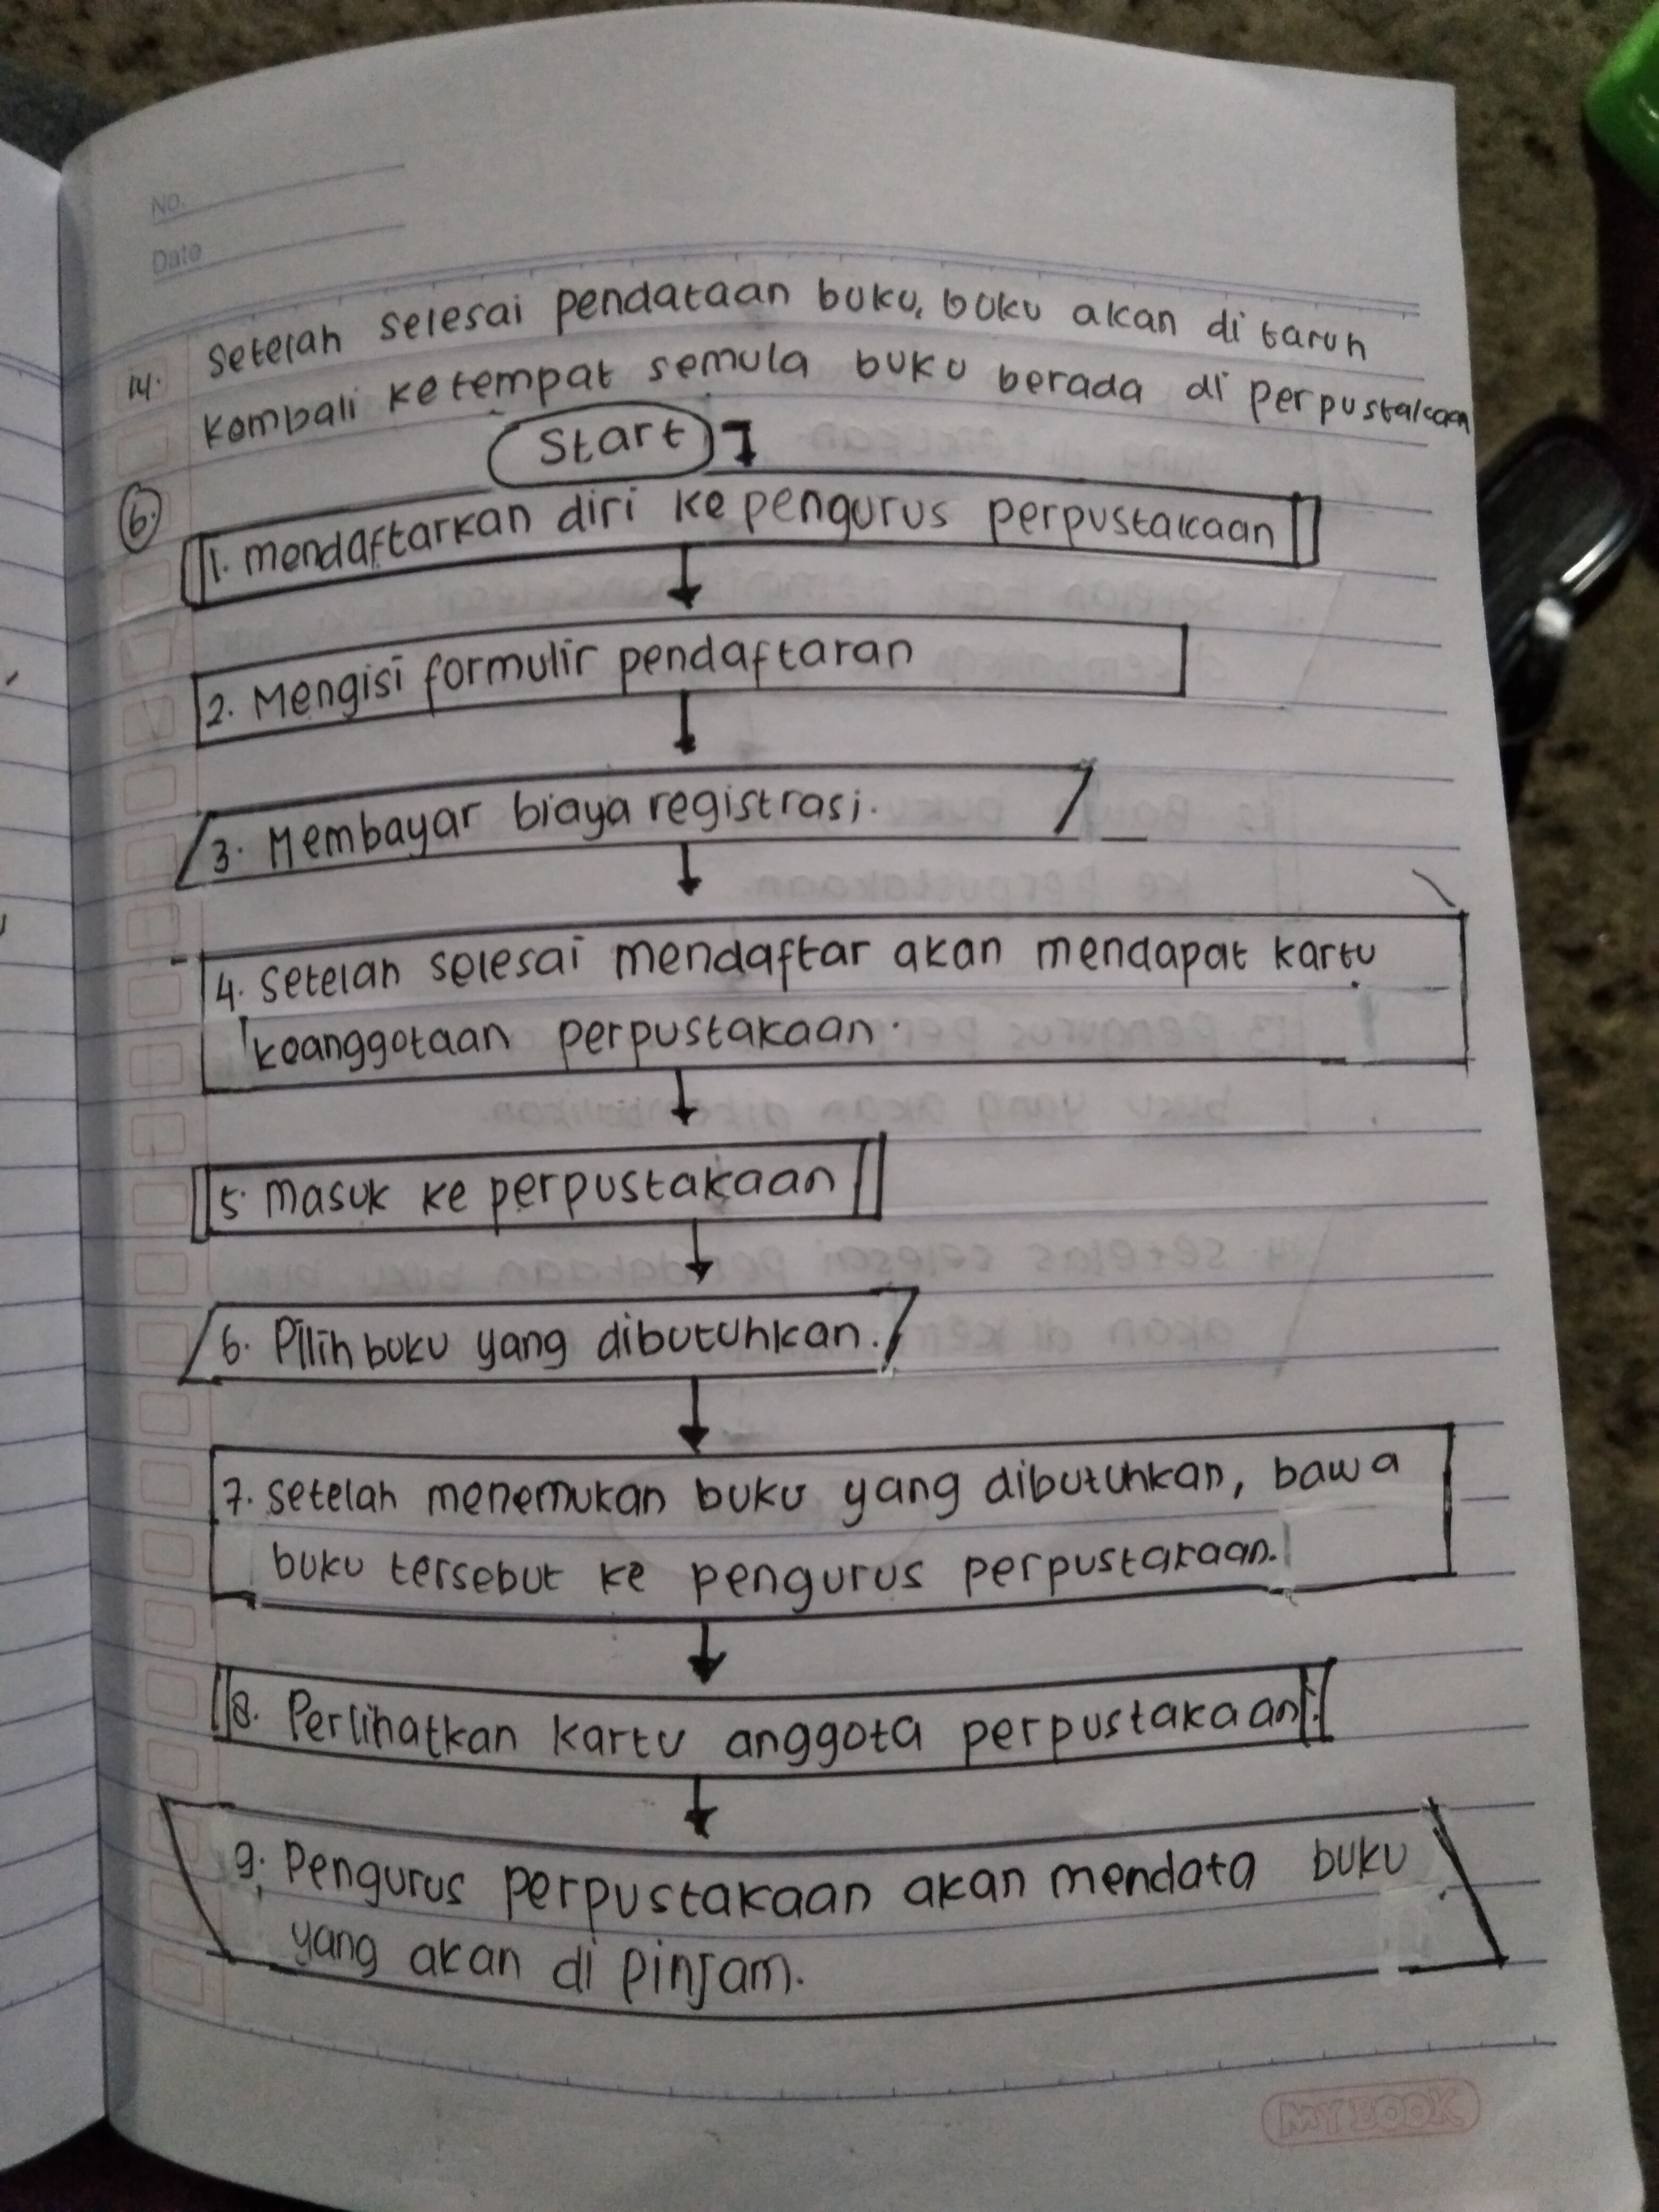 No.
Date
14. Setelah selesai pendataan buku, buku akan di taruh
kembali ketempat semula buku berada di perpustakaan
Start
6.
1. mendaftarkan diri ke pengurus perpustakaan
2. Mengisi formulir pendaftaran
3. Membayar biaya registrasi.
4. Setelah selesai mendaftar akan mendapat kartu
keanggotaan perpustakaan.
5. masuk ke perpustakaan
6. Pilih buku yang dibutuhkan.
7. Setelah menemukan buku yang dibutuhkan, bawa
buku tersebut ke pengurus perpustakaan.
8. Perlihatkan kartu anggota perpustakaan.
9. Pengurus perpustakaan akan mendata buku
yang akan di pinjam.
MY BOOK